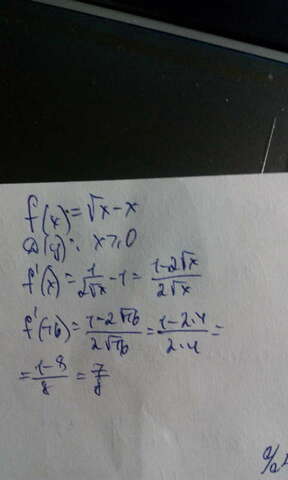 f(x)=√x-x
D(y): x≥0
f'(x)=1/(2√x)-1=(1-2√x)/(2√x)
f'(16)=(1-2√16)/(2√16)=(1-2·4)/(2·4)=
=(1-8)/8=7/8